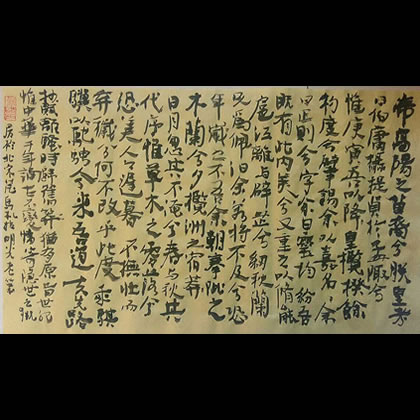 帝高陽之苗裔兮朕皇考
曰伯庸攝提貞於孟陬兮
惟庚寅吾以降皇攬揆餘
初度兮肇錫余以嘉名余
曰正則兮字余曰靈均紛吾
既有此内美兮又重之以脩能
扈江離與辟芷兮紉秋蘭
以爲佩汩余若將不及兮恐
年歲之不吾與朝搴阰之
木蘭兮夕攬洲之宿莽
日月忽其不淹兮春與秋其
代序惟草木之零落兮
恐美人之遲暮不撫壯而
棄穢兮何不改乎此度乘騏
驥以馳騁兮來吾道夫先路
離騷時
惟中華千年